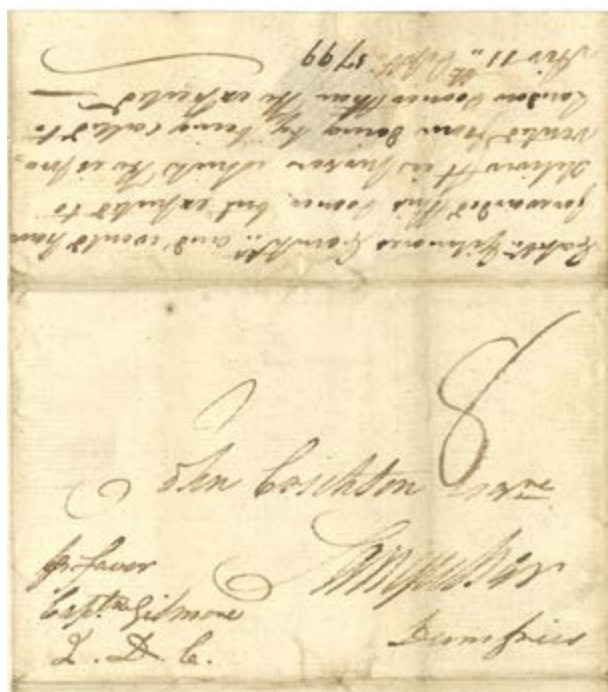 Capt. Gilmores Compts. and would have
forwarded this sooner, but expected to
deliver it in person which he is pre
vented from doing by being called to
London sooner than he expected
Air 11th Sept. 1799
8
John Crichton
Sanquhar
Dumfries
pr favor
Captn Gilmore
L. D. C.